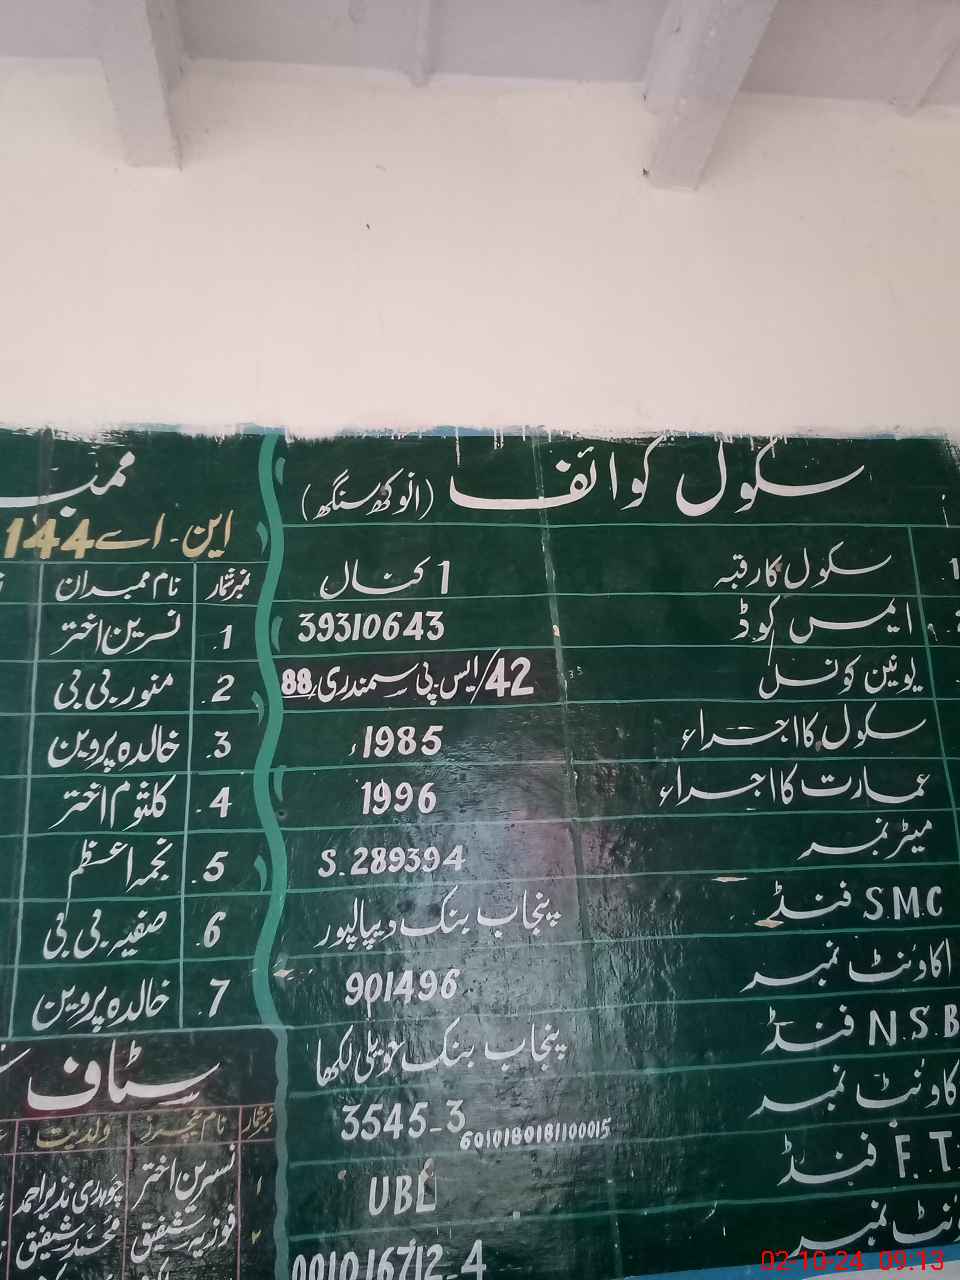 سکول کوائف (انوکھ سنگھ)
سکول کا رقبہ 1 کنال
ایمس کوڈ 39310643
یونین کونسل 42/ایس۔پی سمندری 88
سکول کا اجراء 1985ء
عمارت کا اجراء 1996
میٹر نمبر S.289394
S.M.C فنڈ پنجاب بنک دیپالپور
اکاؤنٹ نمبر 901496
N.S.B فنڈ پنجاب بنک حویلی لکھا
کاؤنٹ نمبر 3545-3 6010180181100015
F.T فنڈ UBL
ونٹ نمبر 001016712-4
ممب
این۔اے 144
نمبر شمار نام ممبران
1. نسرین اختر
2. منور بی بی
3. خالدہ پروین
4. کلثوم اختر
5. نجمہ اعظم
6. صفیہ بی بی
7. خالدہ پروین
سٹاف
نمبر شمار نام ٹیچرز ولدیت
۱ نسرین اختر چوہدری نذیر احمد
۲ فوزیہ شفیق محمد شفیق
02-10-24 09:13